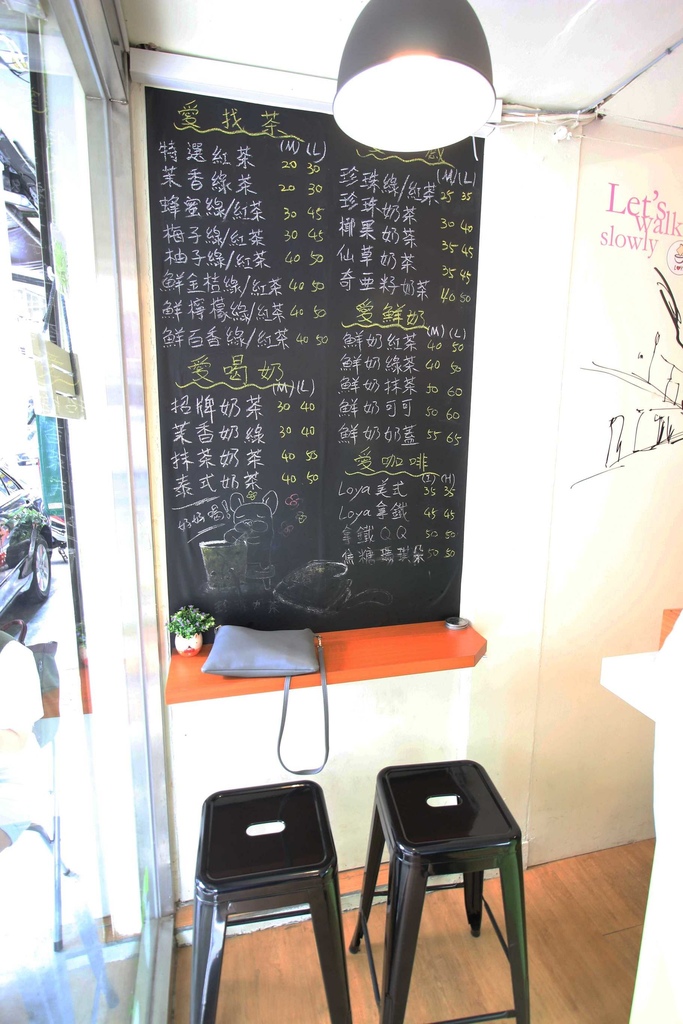 愛找茶
(M) (L)
特選紅茶 20 30
茉香綠茶 20 30
蜂蜜綠/紅茶 30 45
梅子綠/紅茶 30 45
柚子綠/紅茶 40 50
鮮金桔綠/紅茶 40 50
鮮檸檬綠/紅茶 40 50
鮮百香綠/紅茶 40 50
愛喝奶
(M) (L)
招牌奶茶 30 40
茉香奶綠 30 40
抹茶奶茶 40 50
泰式奶茶 40 50
(M) (L)
珍珠綠/紅茶 25 35
珍珠奶茶 30 40
椰果奶茶 35 45
仙草奶茶 35 45
奇亞籽奶茶 40 50
愛鮮奶
(M) (L)
鮮奶紅茶 40 50
鮮奶綠茶 40 50
鮮奶抹茶 50 60
鮮奶可可 50 60
鮮奶奶蓋 55 65
愛咖啡
(I) (H)
Loya美式 35 35
Loya拿鐵 45 45
拿鐵QQ 50 50
焦糖瑪琪朵 50 50
Let's
walk
slowly